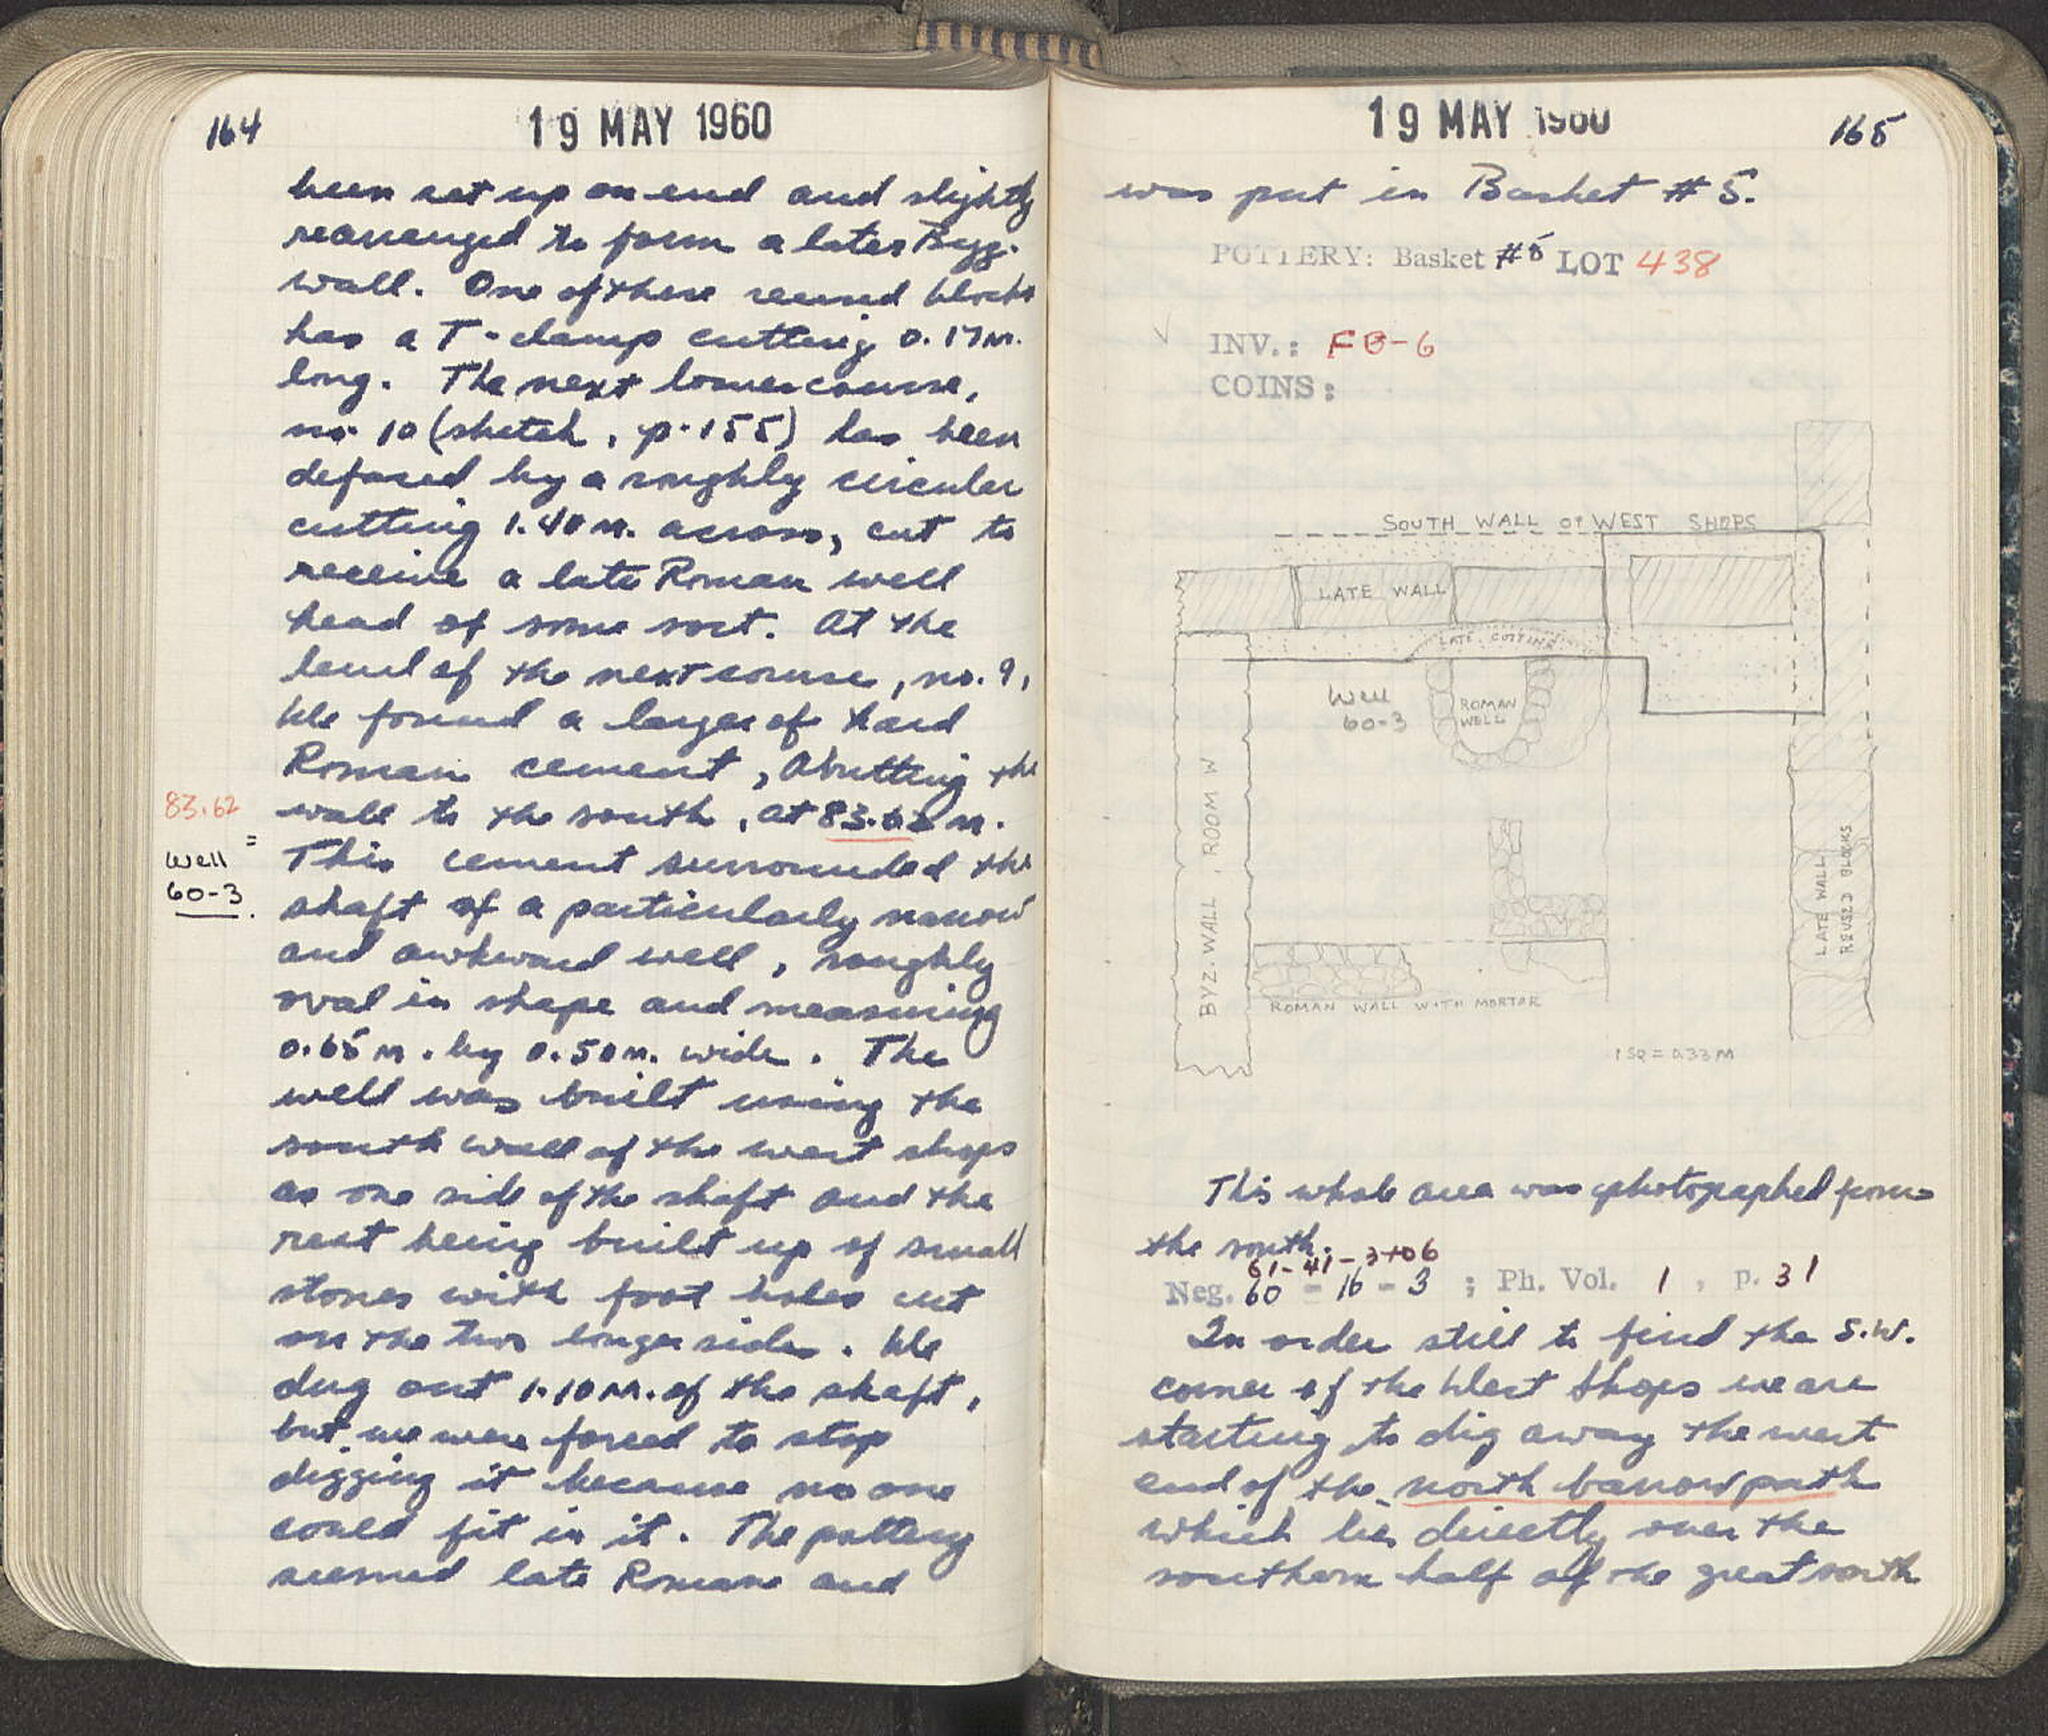 164
19 MAY 1960
been set up on end and slightly
rearranged to form a later Byz.
wall. One of these reused blocks
has a T-clamp cutting 0.17 m.
long. The next lower course,
no. 10 (sketch, p. 155) has been
defaced by a roughly circular
cutting 1.40 m. across, cut to
receive a late Roman well
head of some sort. At the
level of the next course, no. 9,
We found a layer of hard
Roman cement, abutting the
83.62
wall to the south, at 83.62 m.
=
Well
60-3.
This cement surrounded the
shaft of a particularly narrow
and awkward well, roughly
oval in shape and measuring
0.65 m. by 0.50 m. wide. The
well was built using the
south wall of the west shops
as one side of the shaft and the
rest being built up of small
stones with foot holes cut
on the two longer sides. We
dug out 1.10 m. of the shaft,
but we were forced to stop
digging it because no one
could fit in it. The pottery
seemed late Roman and
19 MAY 1960
165
was put in Basket #5.
POTTERY: Basket #5 LOT 438
INV.: FB-6
COINS:
SOUTH WALL OF WEST SHOPS
LATE WALL
LATE CUTTING
Well
60-3
ROMAN
WELL
BYZ. WALL, ROOM W
LATE WALL
REUSED BLOCKS
ROMAN WALL WITH MORTAR
1 SQ = 0.33 M
This whole area was photographed from
the south.
61-41-3+06
Neg. 60 - 16 - 3 ; Ph. Vol. 1 , p. 31
In order still to find the S.W.
corner of the West Shops we are
starting to dig away the west
end of the north barrow path
which lies directly over the
southern half of the great north